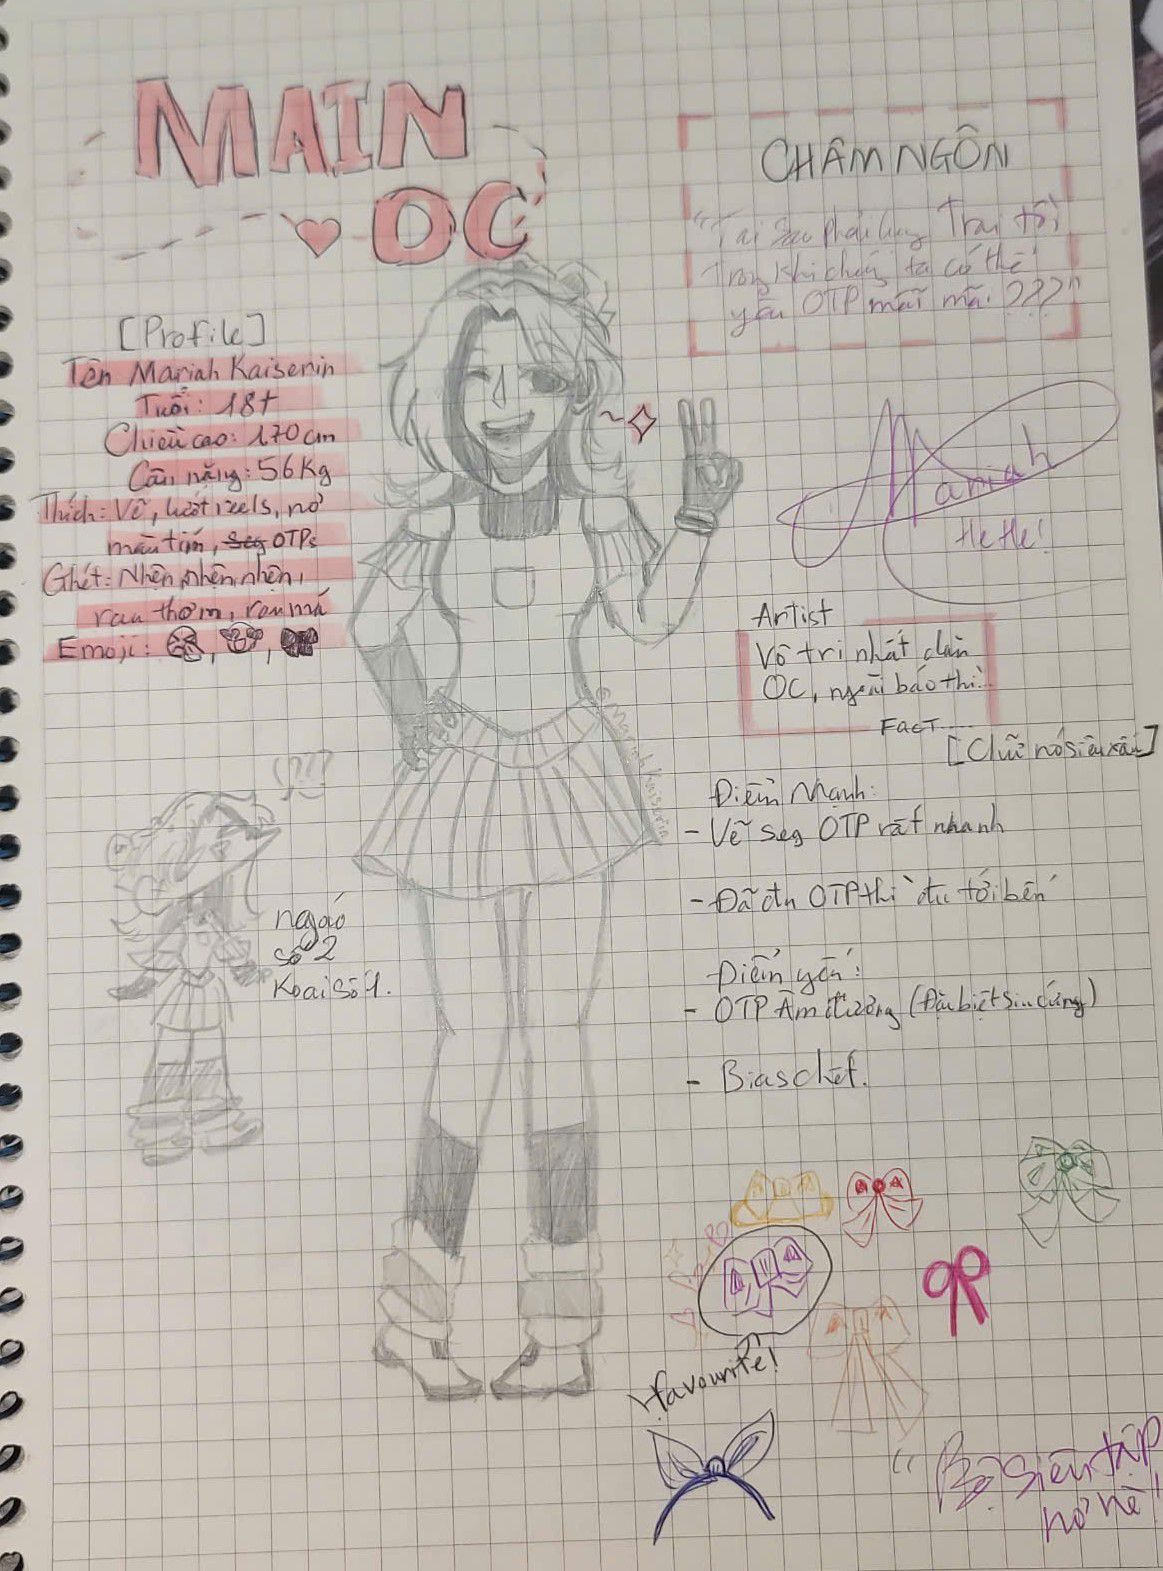 MAIN
OC
CHÂM NGÔN
"Tại Sao phải lụy Trai tồi
Trong khi chúng ta có thể
yêu OTP mãi mãi ???"
[Profile]
Tên Mariah Kaiserin
Tuổi: 18+
Chiều cao: 170 cm
Cân nặng: 56 Kg
Thích: Vẽ, lướt reels, nơ
màu tím, seg OTPs
Ghét: Nhện, nhện, nhện,
rau thơm, rau má
Emoji:
Mariah
HeHe!
Artist
Vô tri nhất dàn
OC, người báo thì...
FACT
[Chữ nó siêu xấu]
©Mariah Kaiserin
Điểm Mạnh:
- Vẽ seg OTP rất nhanh
- Đã đu OTP thì đu tới bến
Điểm yếu:
- OTP Âm dương (Đặc biệt)
- Bias chết.
ngáo
số 2
Koai Số 1.
favourite!
"Bộ Siêu tập
nơ nè!